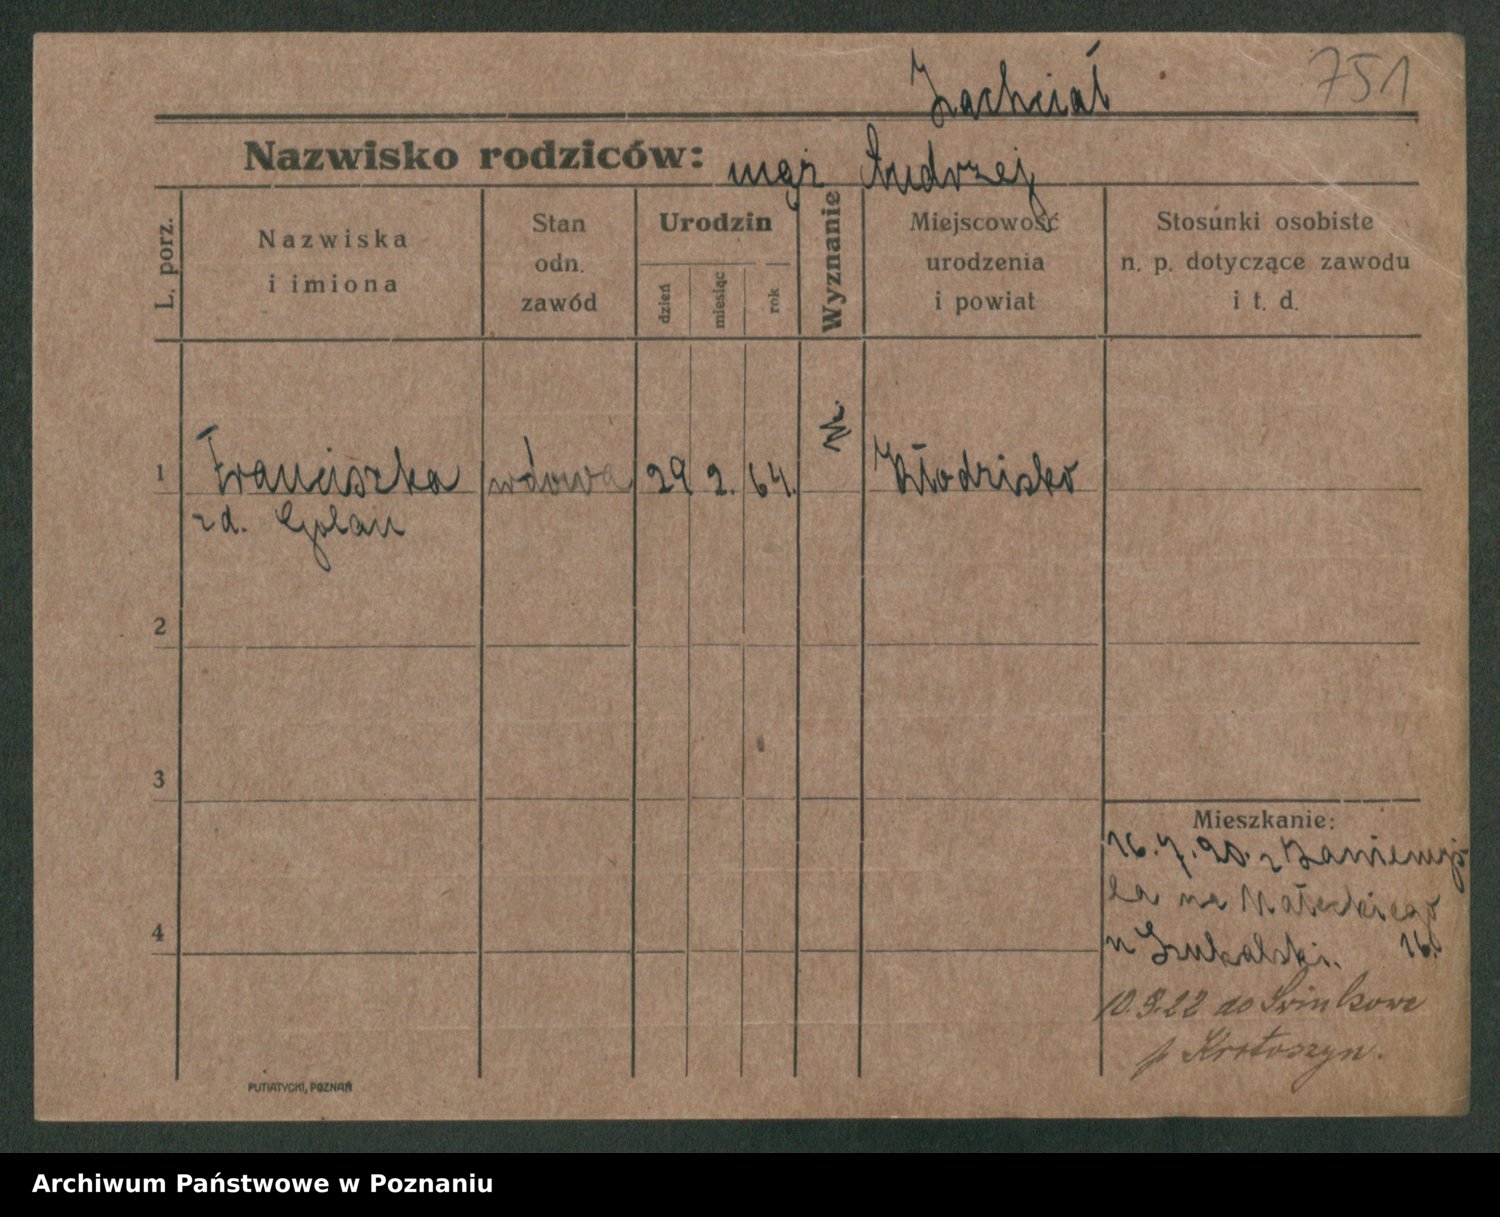 751
Zachciał
Nazwisko rodziców: mąż Andrzej
L. porz.
Nazwiska
i imiona
Stan
odn.
zawód
Urodzin
dzień
miesiąc
rok
Wyznanie
Miejscowość
urodzenia
i powiat
Stosunki osobiste
n. p. dotyczące zawodu
i t. d.
1 Franciszka wdowa 29 2. 64. Kłodzisko
zd. Golan
2
3
4
Mieszkanie:
16.7.20. z Zaniemyś-
la na Małeckiego
u Szukalski. 16.
10.3.22 do Swinkowa
p Krotoszyn.
PUTIATYCKI, POZNAŃ
Archiwum Państwowe w Poznaniu